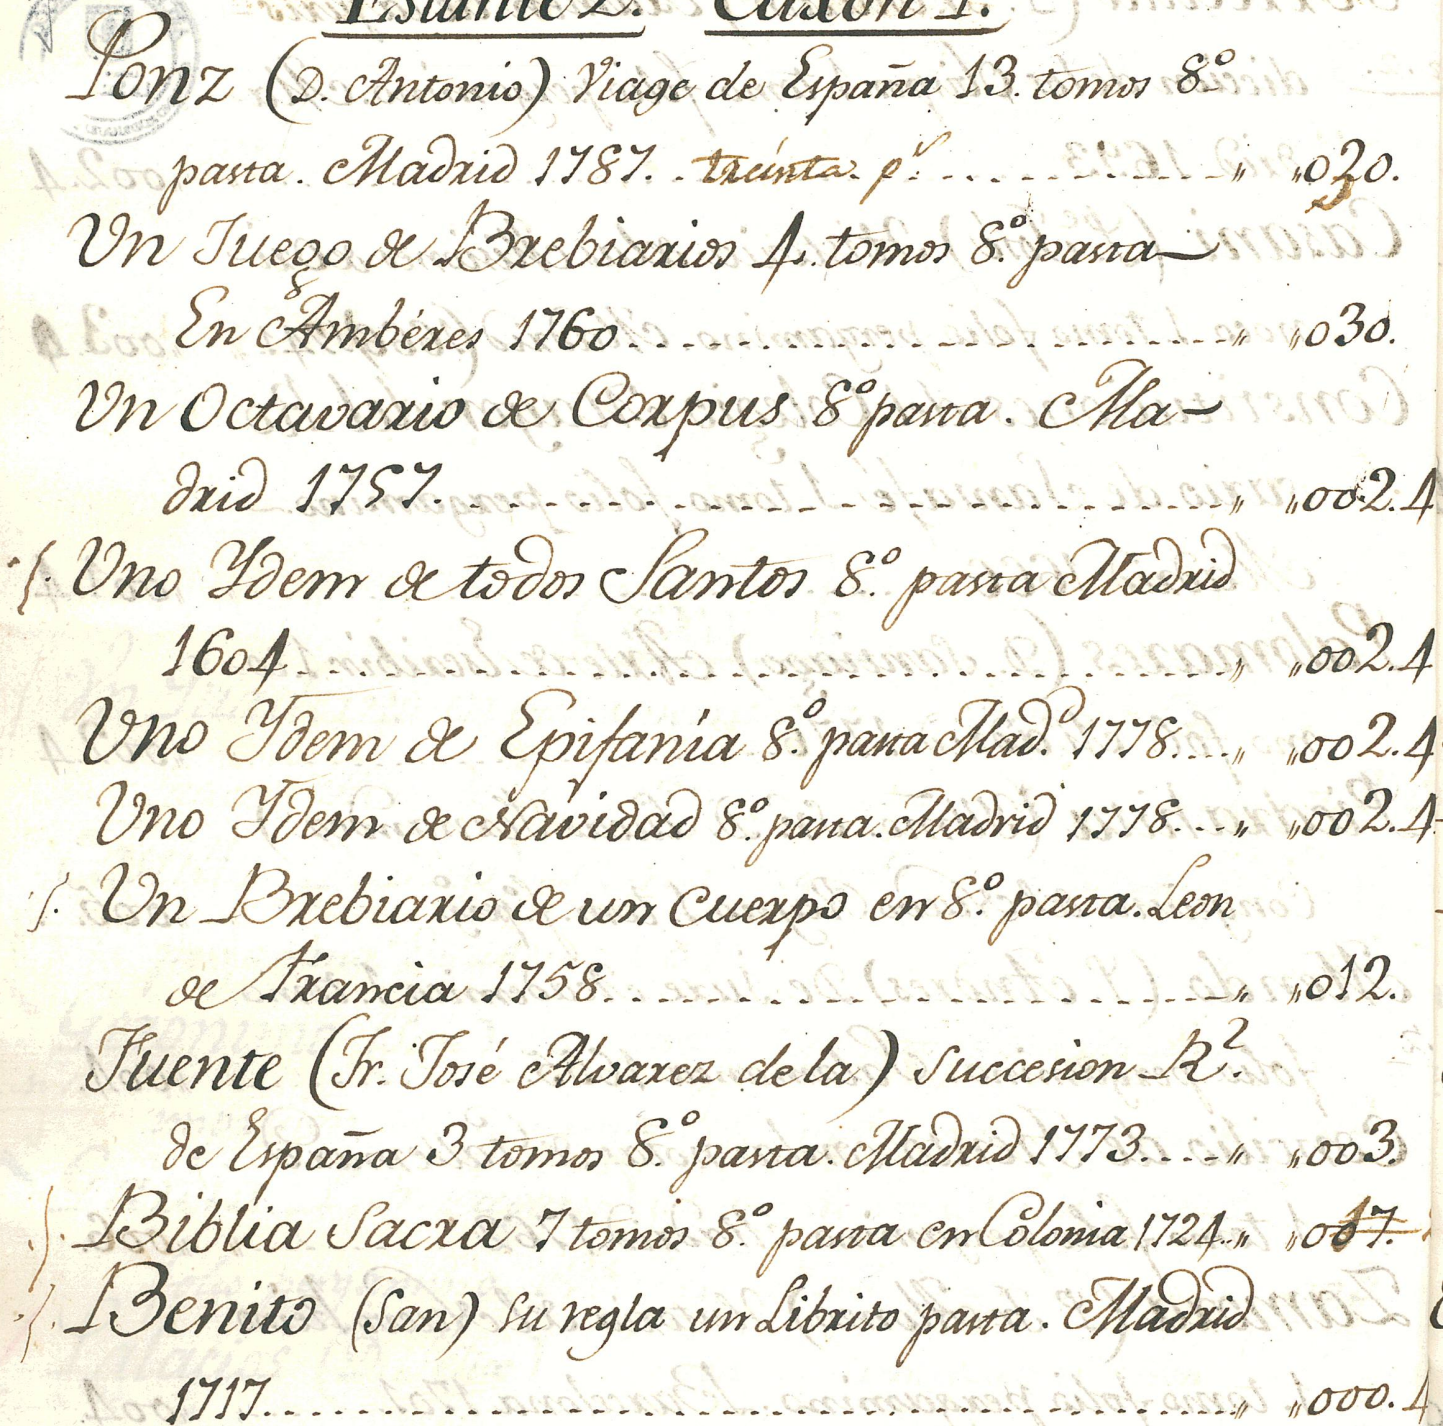 Estante 2. Caxon 1.
Ponz (D. Antonio) Viage de España 13. tomos 8.º
pasta. Madrid 1787. . treinta. p.s . . . . . . . . . . . „ „020.
Un Juego de Brebiarios 4. tomos 8.º pasta—
En Ambéres 1760. . . . . . . . . . . . . . . . . . . . . . „ „030.
Un Octavario de Corpus 8.º pasta. Ma-
drid 1757. . . . . . . . . . . . . . . . . . . . . . . . . . „ „002.4
Uno Ydem de todos Santos 8.º pasta Madrid
1604. . . . . . . . . . . . . . . . . . . . . . . . . . . . . „ „002.4
Uno Ydem de Epifanía 8.º pasta Mad.d 1778. . . . „ „002.4
Uno Ydem de Navidad 8.º pasta. Madrid 1778. . . „ „002.4
Un Brebiario de un cuerpo en 8.º pasta. Leon
de Francia 1758. . . . . . . . . . . . . . . . . . . . . . „ „012.
Fuente (Fr. José Alvarez de la) Succesion R.l
de España 3 tomos 8.º pasta. Madrid 1773. . . . „ „003.
Biblia Sacra 7 tomos 8.º pasta en Colonia 1724. . „
Benito (San) su regla un Librito pasta. Madrid
1717. . . . . . . . . . . . . . . . . . . . . . . . . . . . . . „ „000.4